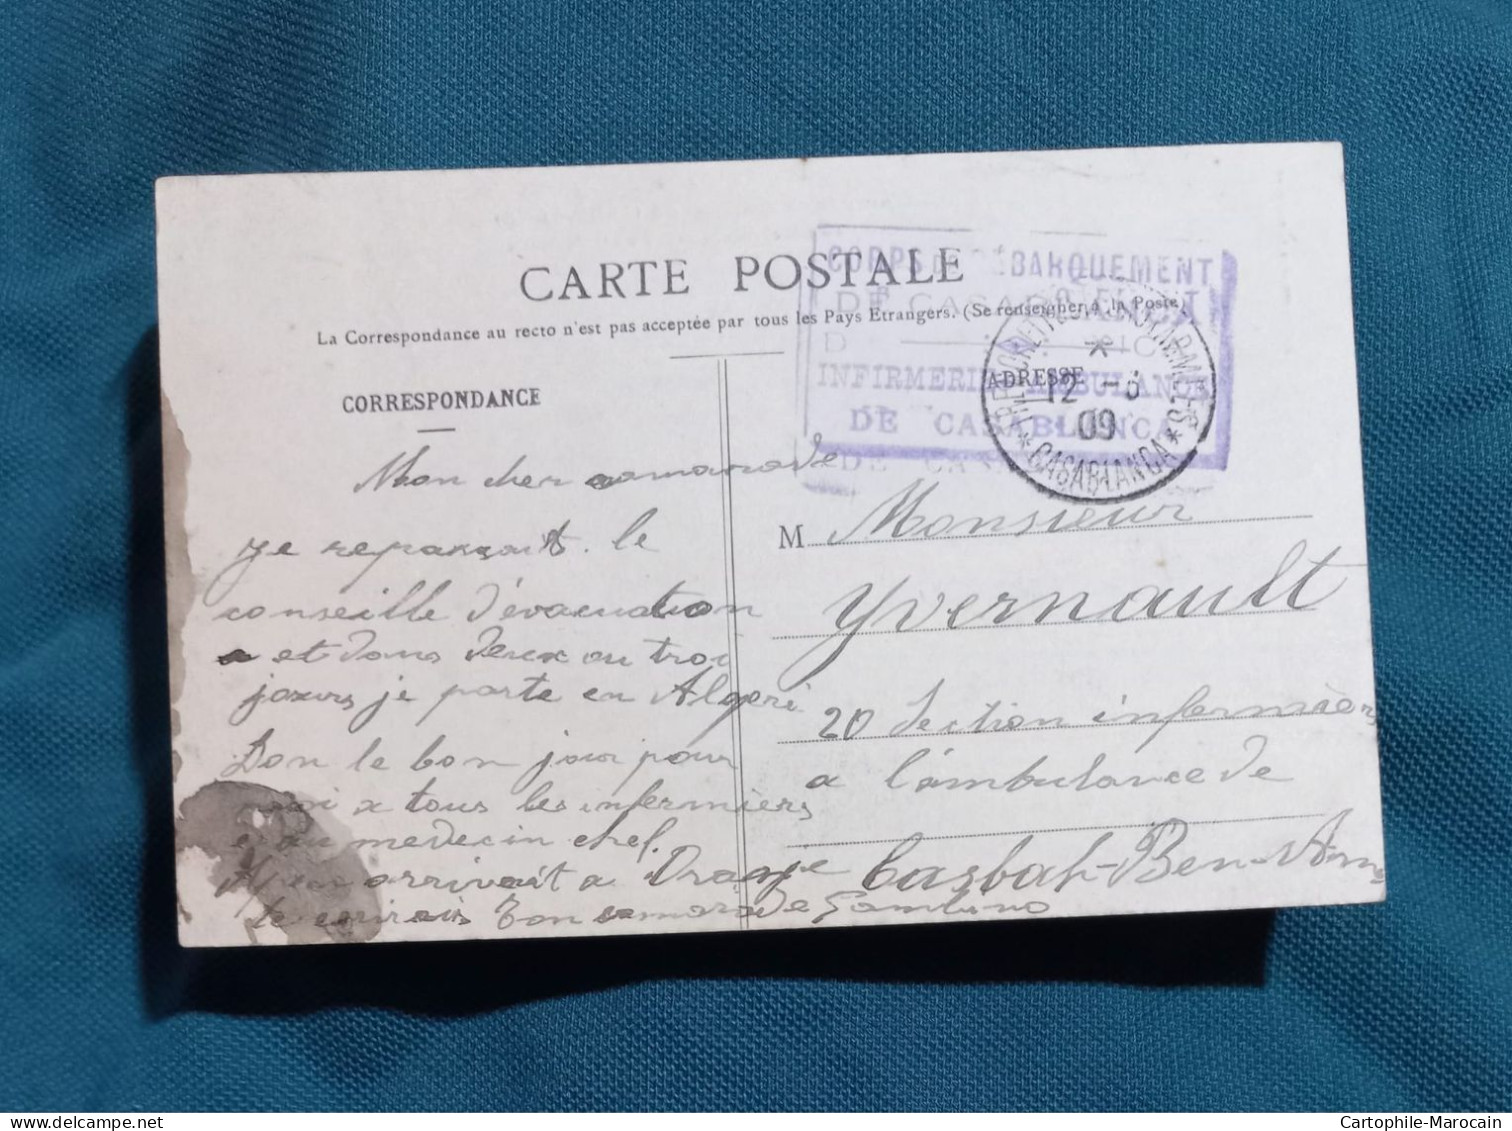 CARTE POSTALE
La Correspondance au recto n'est pas acceptée par tous les Pays Etrangers. (Se renseigner à la Poste)
CORPS DE DÉBARQUEMENT
DE CASABLANCA
INFIRMERIE AMBULANCE
DE CASABLANCA
12 -3
09
* CASABLANCA *
CORRESPONDANCE
ADRESSE
Mon cher camarade
je repassait le
conseille d'évacuation
et dans deux ou troi
jours je parte en Algeri
Don le bon jour pour
moi a tous les infermiers
e au medecin chef.
arrivait a Oran je
te ecrirais Ton camarade Gambino
M Monsieur
Yvernault
20 Section infermièrs
a l'ambulance de
Casbah-Ben-Am
Cartophile-Marocain